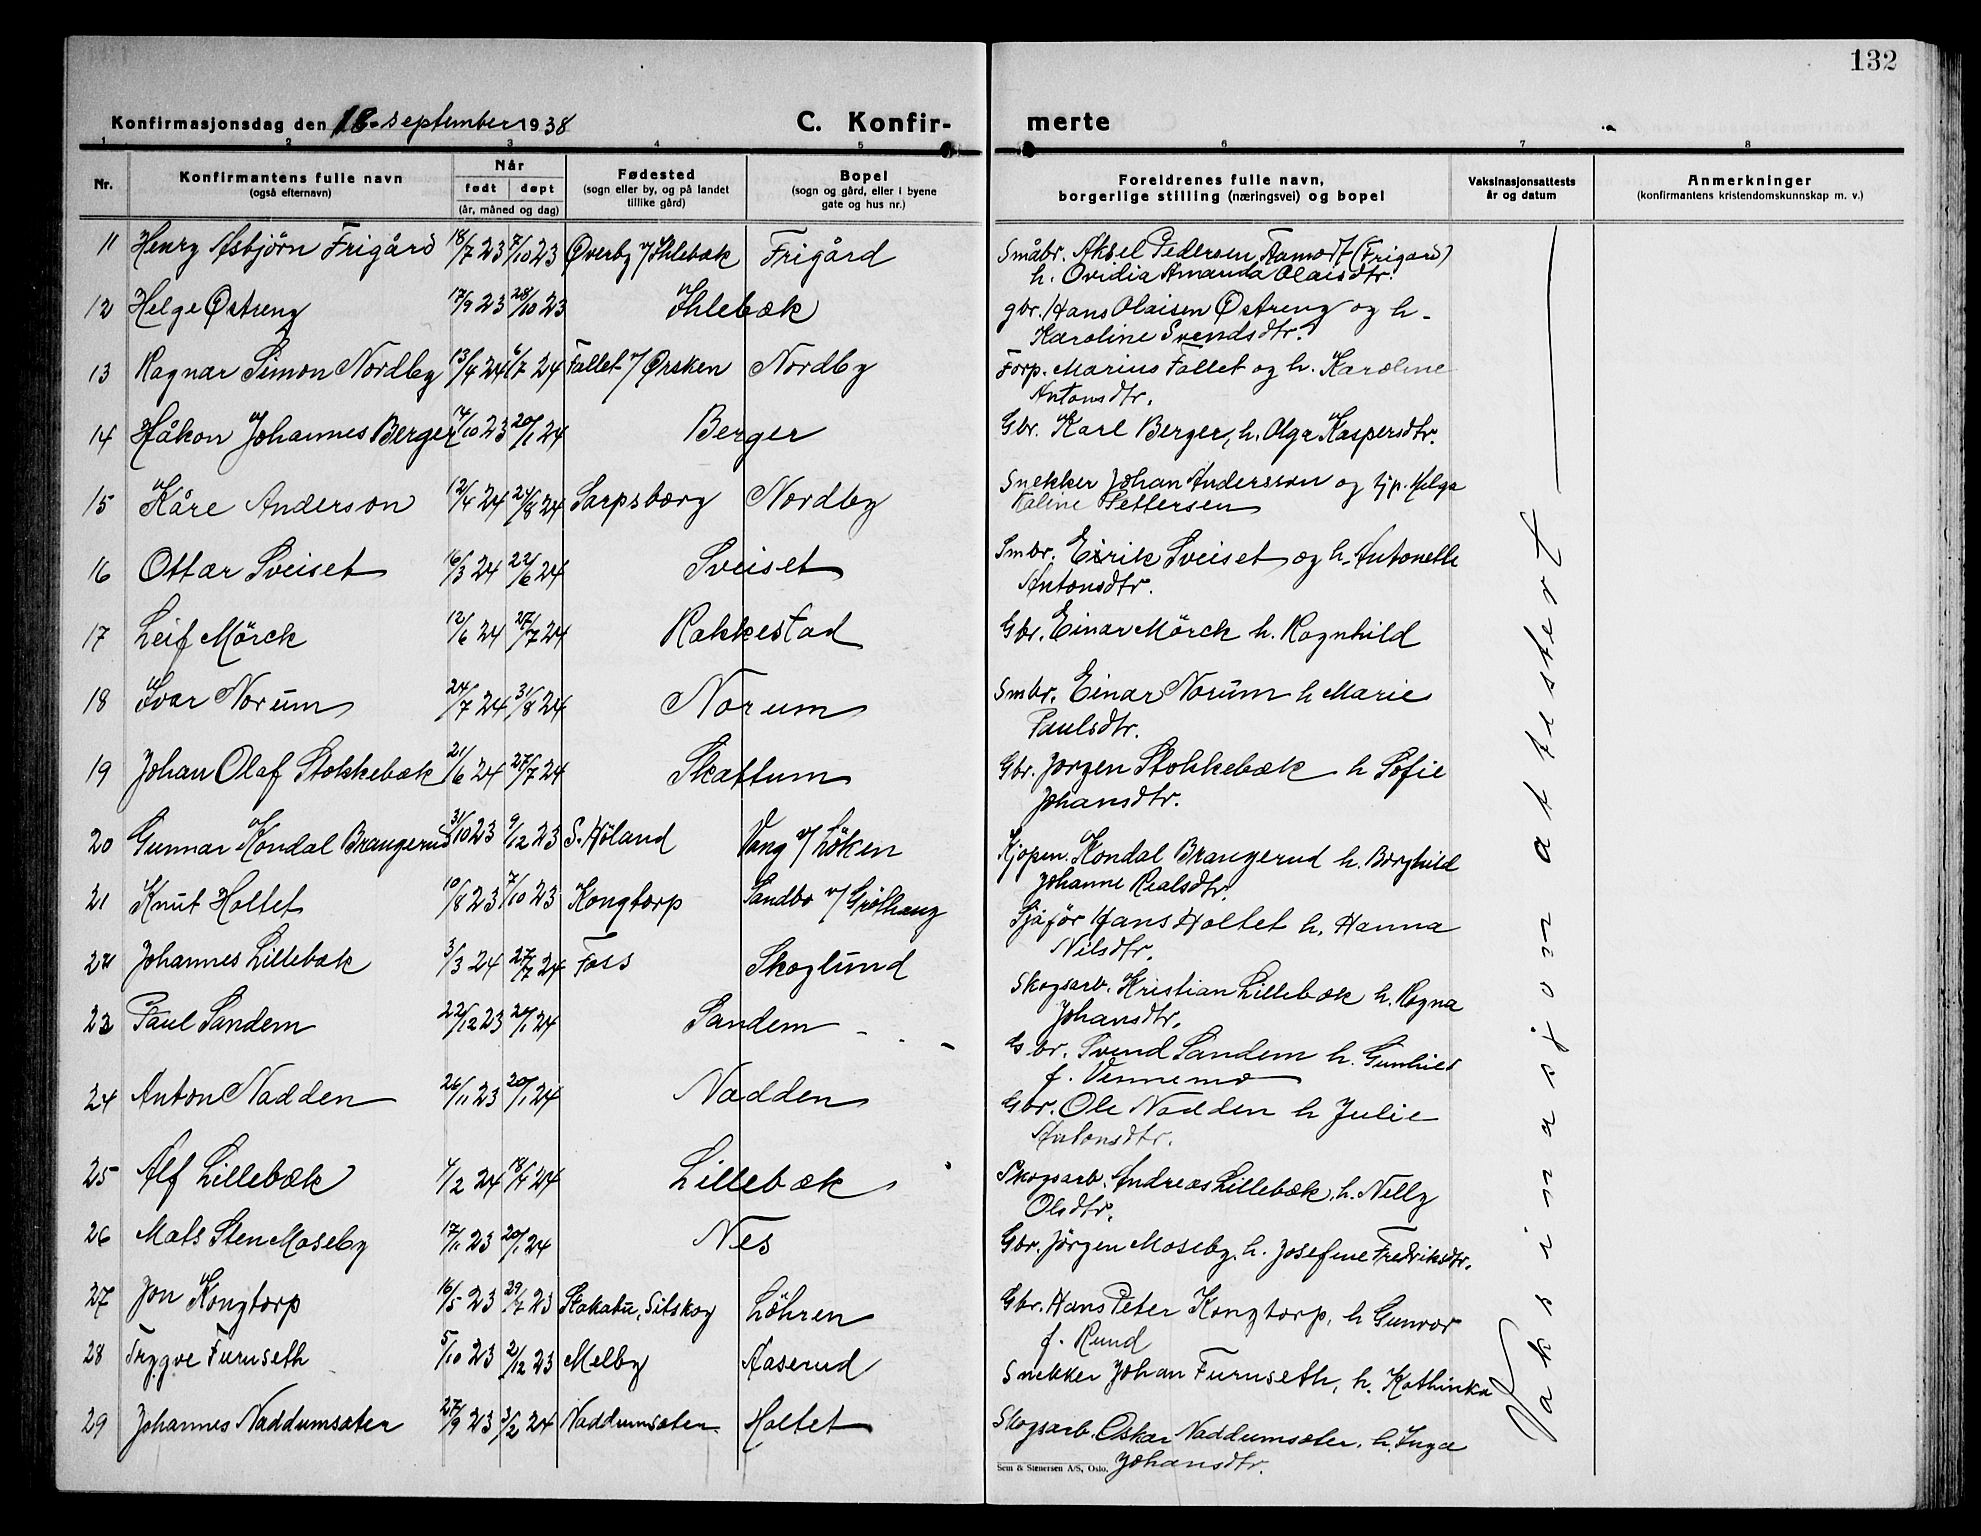 132
Konfirmasjonsdag den 18. september 1938
C. Konfir-
merte
1 2 3 4 5 6 7 8
Nr.
Konfirmantens fulle navn
(også efternavn)
Når
født døpt
(år, måned og dag)
Fødested
(sogn eller by, og på landet
tillike gård)
Bopel
(sogn og gård, eller i byene
gate og hus nr.)
Foreldrenes fulle navn,
borgerlige stilling (næringsvei) og bopel
Vaksinasjonsattests
år og datum
Anmerkninger
(konfirmantens kristendomskunnskap m. v.)
11 Henry Asbjörn Frigård 18/7 23 7/10 23 Øverby v/ Ihlebæk Frigård
Småbr. Aksel Pedersen Aamodt (Frigård)
h. Ovidia Amanda Olaisdtr.
12 Helge Østreng 17/9 23 28/10 23 Ihlebæk
gbr. Hans Olaisen Østreng og h.
Karoline Svendsdtr.
13 Ragnar Simon Nordby 13/4 24 6/7 24 Fallet v/ Ørsken Nordby
Forp. Marius Fallet og h. Karoline
Antonsdtr.
14 Håkon Johannes Berger 14/10 23 20/1 24 Berger
Gbr. Karl Berger, h. Olga Kaspersdtr.
15 Kåre Anderson 12/4 24 24/8 24 Sarpsborg Nordby
Snekker Johan Andersson og tjp. Helga
Kaline Pettersen
16 Ottar Sveiset 16/3 24 22/6 24 Sveiset
Smbr. Eirik Sveiset og h. Antonette
Antonsdtr.
17 Leif Mörck 12/6 24 27/7 24 Rakkestad
Gbr. Einar Mörck h. Ragnhild
18 Ivar Norum 24/7 24 31/8 24 Norum
Smbr. Einar Norum h Marie
Paulsdtr.
19 Johan Olaf Stokkebæk 21/6 24 27/7 24 Skattum
Gbr. Jorgen Stokkebæk h Sofie
Johansdtr.
20 Gunnar Kondal Brangerud 31/10 23 9/12 23 S. Höland Vang v/ Löken
Kjøpm. Kondal Brangerud h. Borghild
Johanne Realsdtr.
21 Knut Holtet 10/8 23 7/10 23 Kongtorp Sandbo v/ Gröthaug
Sjåför Hans Holtet h. Hanna
Nilsdtr.
22 Johannes Lillebæk 3/3 24 27/7 24 Foss Skoglund
Skogsarb. Kristian Lillebæk h. Ragna
Johansdtr.
23 Paul Sandem 22/12 23 20/1 24 Sandem
Gbr. Svend Sandem h. Gunhild
f. Vennemo
24 Anton Nadden 26/11 23 20/1 24 Nadden
Gbr. Ole Nadden h Julie
Antonsdtr.
25 Alf Lillebæk 4/2 24 18/4 24 Lillebæk
Skogsarb. Andreas Lillebæk, h. Nelly
Olsdtr.
26 Mats Sten Moseby 17/11 23 20/1 24 Nes
Gbr. Jörgen Moseby, h. Josefine Fredriksdtr.
27 Jon Kongtorp 16/5 23 29/7 23 Stakatu, Sitskog Löhren
Gbr. Hans Peter Kongtorp, h Gunvor
f. Rund
28 Trygve Furuseth 5/10 23 2/12 23 Melby Aaserud
Snekker Johan Furuseth, h. Kathinka
29 Johannes Naddumsæter 27/9 23 3/2 24 Naddumsæter Holtet
Skogsarb. Oskar Naddumsæter, h. Inga
Johansdtr.
Vaksinasjon attestert
Sem & Stenersen A/S, Oslo.